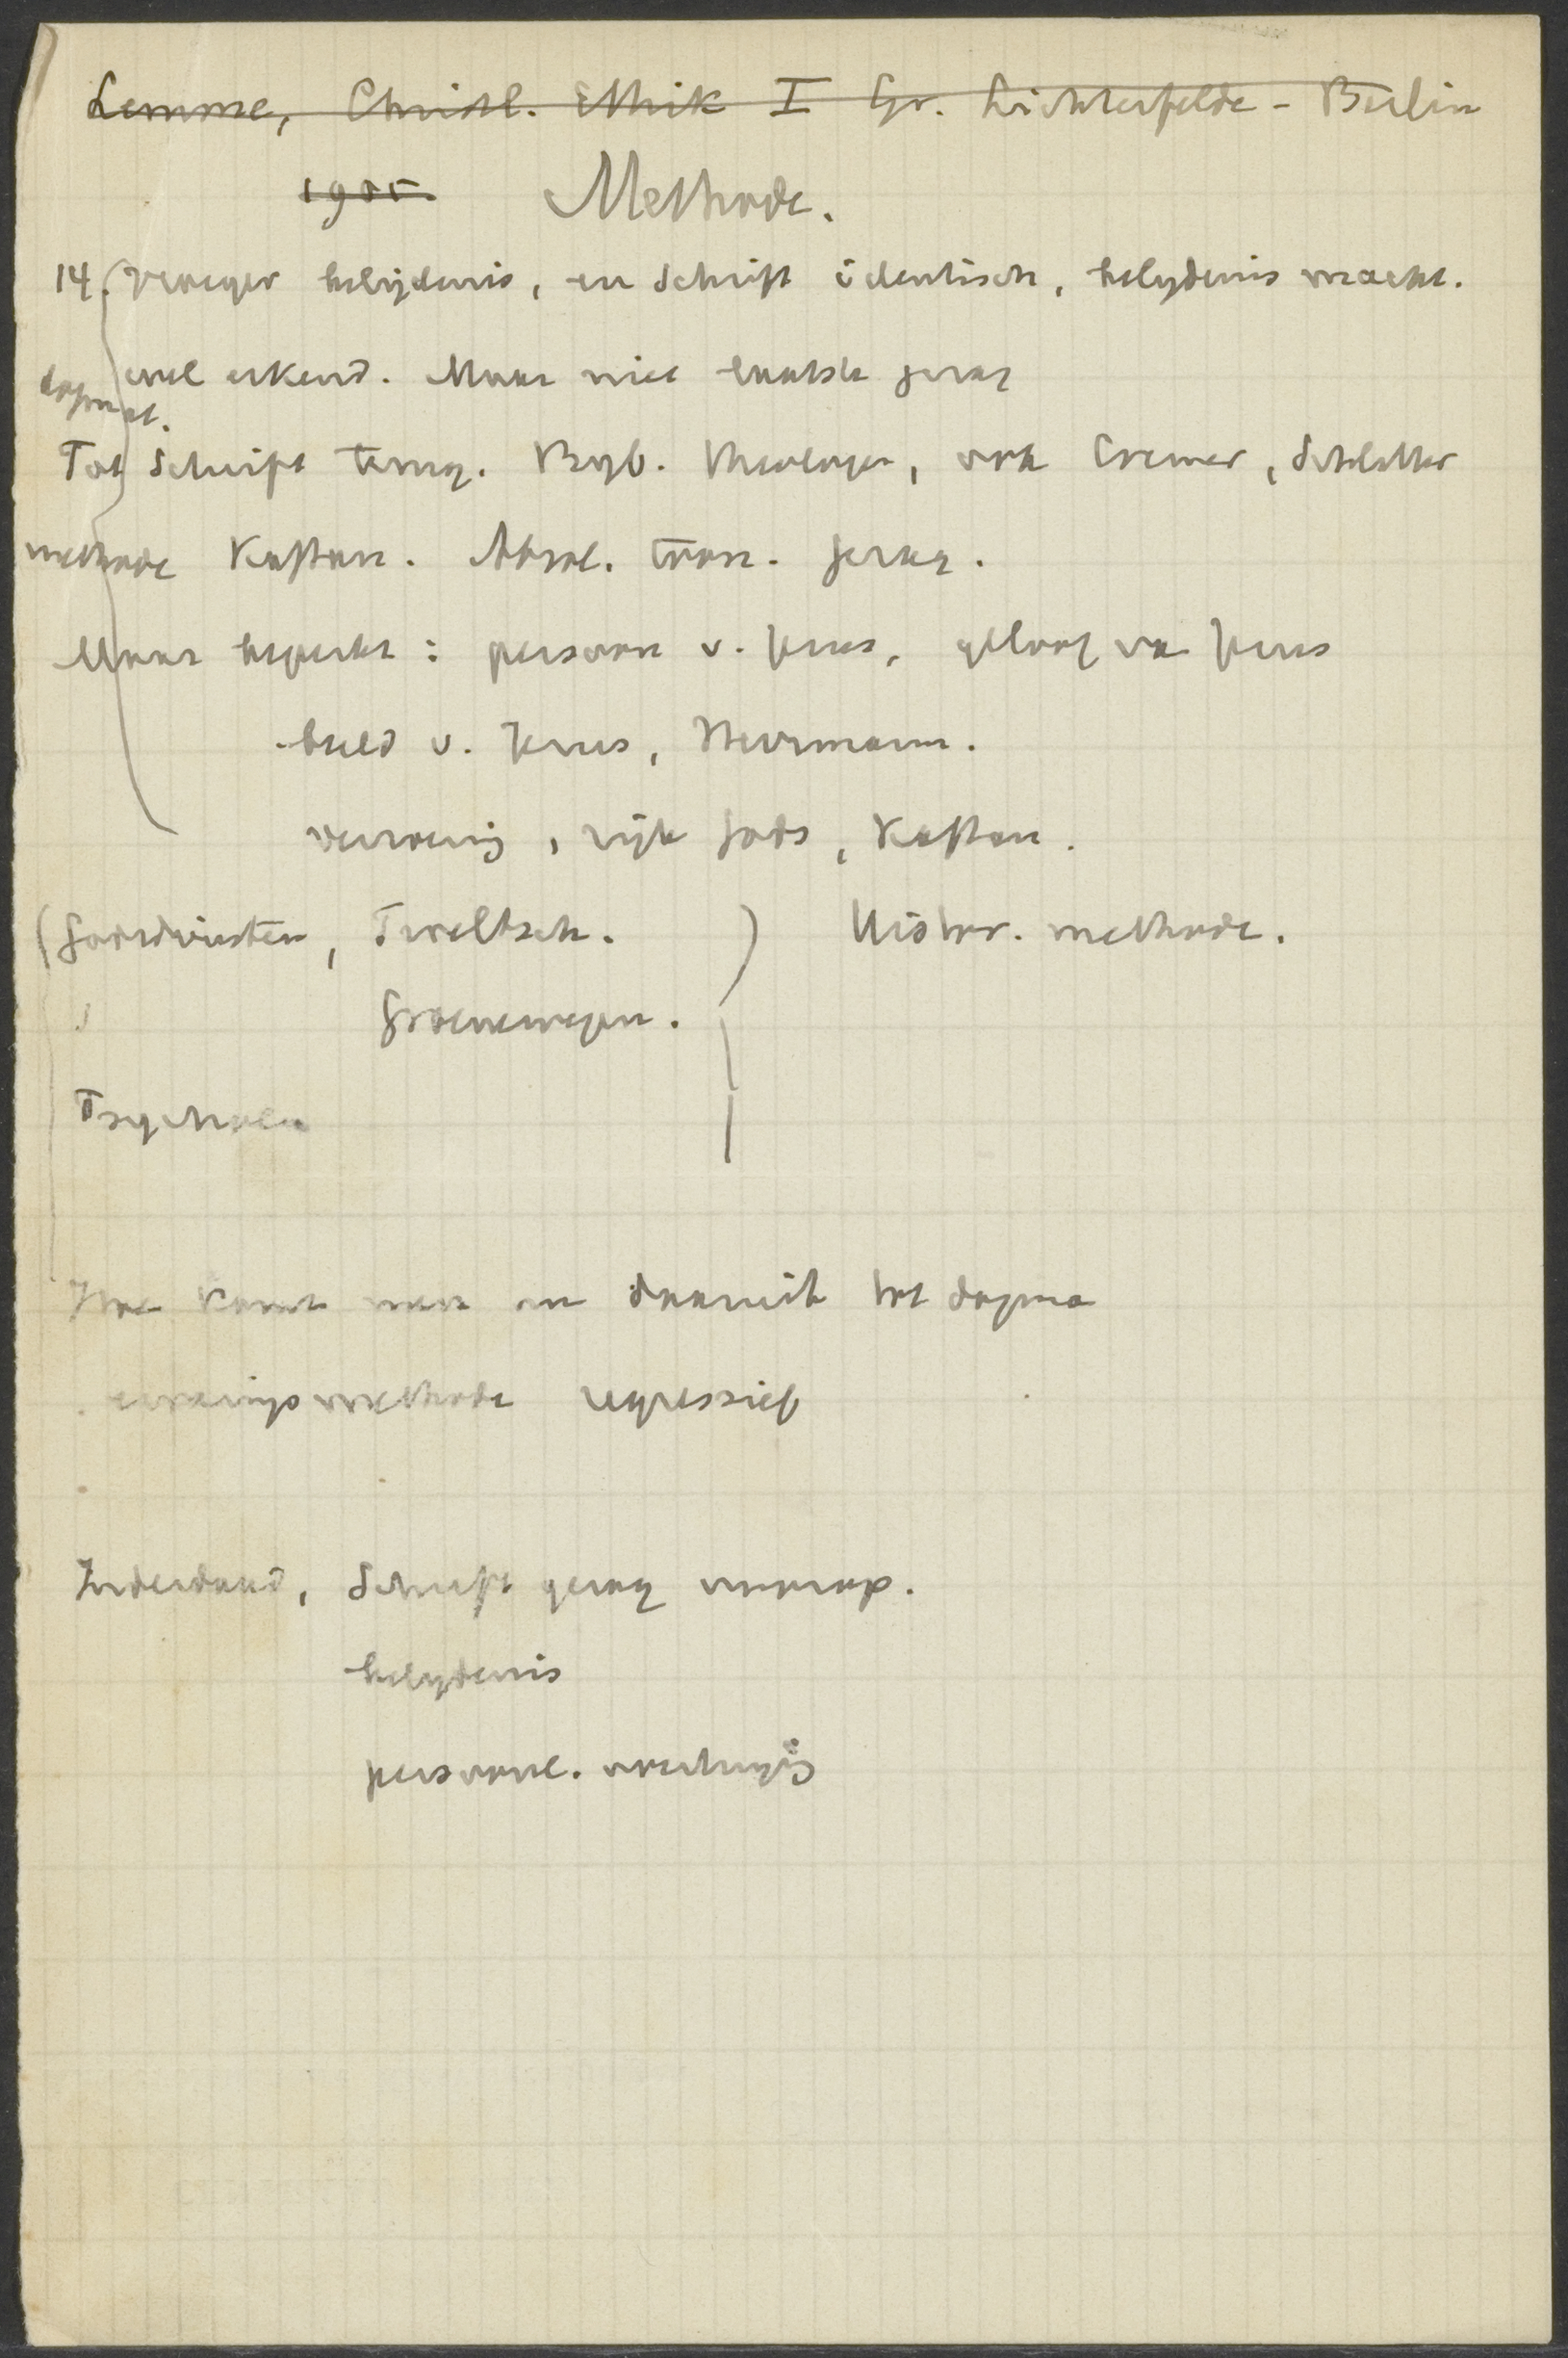 Lemme, Christl. Ethik I Gr. Lichterfelde - Berlin
1905. Methode.
14. Vroeger belijdenis, en Schrift identisch, belydenis maakt.
wel erkend. Maar niet laatste gezag
dogmat.
Tot Schrift terug. Byb. theologen, ook Cremer, Schlatter
methode Kaftan. Absol. gezag.
Maar beperkt: persoon v. Jezus, geloof van Jezus
beeld v. Jezus, Herrmann.
verzoening, rijk Gods, Kaftan.
(Godsdiensten, Troeltsch.) Histor. methode.
Groenewegen.
Psychol.
Hoe komt men nu daaruit tot dogma
ervaringsmethode regressief
Inderdaad, Schrift gezag
belydenis
persoonl.